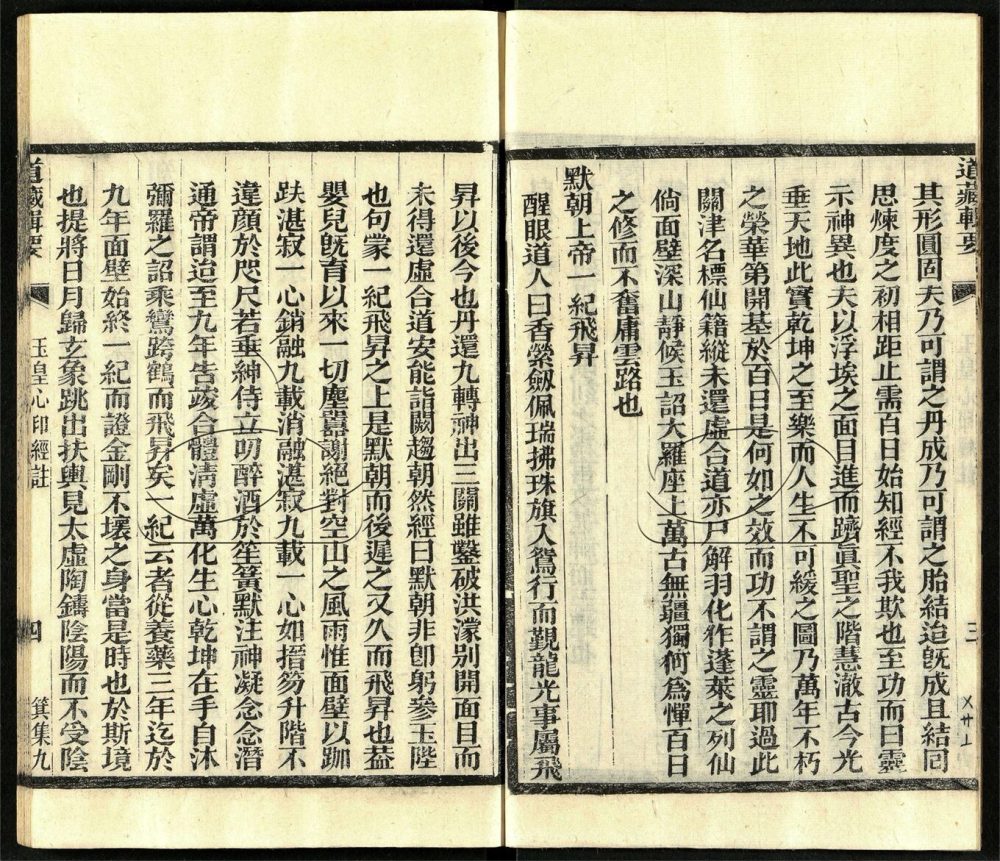 道藏輯要
三
其形圓固夫乃可謂之丹成乃可謂之胎結迨旣成且結囘
思煉度之初相距止需百日始知經不我欺也至功而曰靈
示神異也夫以浮埃之面目進而躋眞聖之階慧澈古今光
垂天地此實乾坤之至樂而人生不可緩之圖乃萬年不朽
之榮華第開基於百日是何如之效而功不謂之靈耶過此
關津名標仙籍縱未還虛合道亦尸解羽化作蓬萊之列仙
倘面壁深山靜候玉詔大羅座上萬古無疆獨何爲憚百日
之修而不奮庸雲路也
默朝上帝一紀飛昇
醒眼道人曰香縈劔佩瑞拂珠旗入鴛行而覲龍光事屬飛
昇以後今也丹還九轉神出三關雖鑿破洪濛別開面目而
未得還虛合道安能詣闕趨朝然經曰默朝非卽躬參玉陛
也句蒙一紀飛昇之上是默朝而後遲之又久而飛昇也葢
嬰兒旣育以來一切塵囂謝絕對空山之風雨惟面壁以跏
趺湛寂一心銷融九載消融湛寂九載一心如搢笏升階不
違顏於咫尺若垂紳侍立叨醉酒於笙簧默注神凝念念潛
通帝謂迨至九年告竣合體清虛萬化生心乾坤在手自沐
彌羅之詔乘鸞跨鶴而飛昇矣一紀云者從養藥三年迄於
九年面壁始終一紀而證金剛不壞之身當是時也於斯境
也提將日月歸玄象跳出扶輿見太虛陶鑄陰陽而不受陰
道藏輯要
玉皇心印經註
四
箕集九